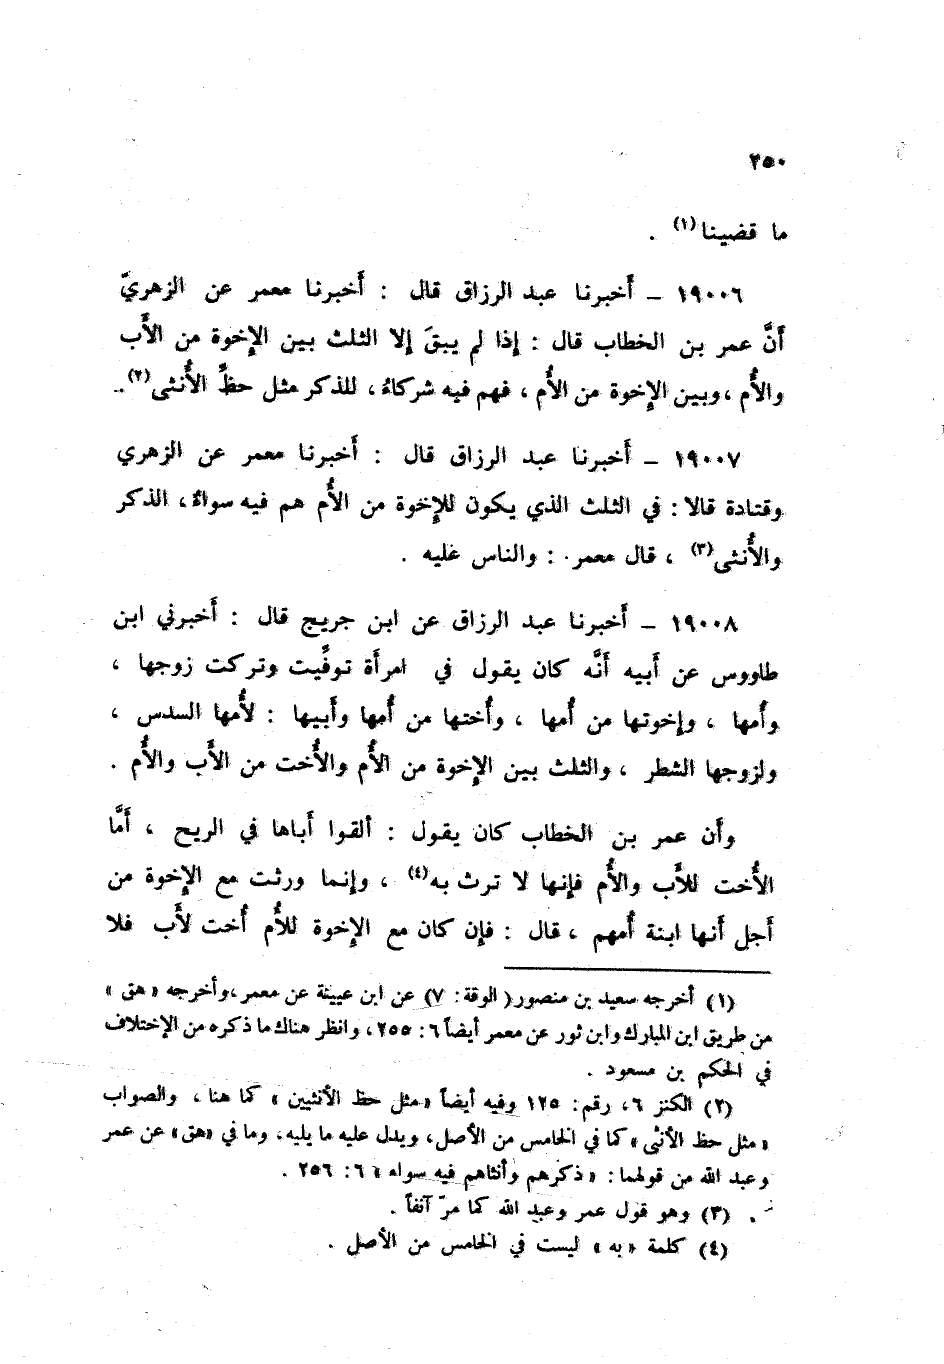 ٢٥٠
ما قضينا(١) .
١٩٠٠٦ – أَخبرنا عبد الرزاق قال : أَخبرنا معمر عن الزهريّ
أَنَّ عمر بن الخطاب قال : إذا لم يبقَ إلا الثلث بين الإخوة من الأَب
والأُم ، وبين الإخوة من الأُم ، فهم فيه شركاءُ ، للذكر مثل حظِّ الأُنثى(٢) .
١٩٠٠٧ – أَخبرنا عبد الرزاق قال : أَخبرنا معمر عن الزهري
وقتادة قالا : في الثلث الذي يكون للإخوة من الأُم هم فيه سواءٌ ، الذكر
والأُنثى(٣) ، قال معمر : والناس عليه .
١٩٠٠٨ – أَخبرنا عبد الرزاق عن ابن جريج قال : أَخبرني ابن
طاووس عن أَبيه أَنَّه كان يقول في امرأَة توفِّيت وتركت زوجها ،
وأُمها ، وإخوتها من أُمها ، وأُختها من أُمها وأَبيها : لأُمها السدس ،
ولزوجها الشطر ، والثلث بين الإخوة من الأُم والأُخت من الأَب والأُم .
وأَن عمر بن الخطاب كان يقول : ألقوا أَباها في الريح ، أَمَّا
الأُخت للأَب والأُم فإنها لا ترث به(٤) ، وإنما ورثت مع الإخوة من
أَجل أَنها ابنة أُمهم ، قال : فإن كان مع الإخوة للأُم أُخت لأَب فلا
(١) أخرجه سعيد بن منصور (الوقة : ٧) عن ابن عيينة عن معمر ، وأخرجه « هق »
من طريق ابن المبارك وابن ثور عن معمر أيضاً ٦ : ٢٥٥ ، وانظر هناك ما ذكره من الإختلاف
في الحكم بن مسعود .
(٢) الكنز ٦ ، رقم : ١٢٥ وفيه أيضاً « مثل حظ الأنثيين » كما هنا ، والصواب
« مثل حظ الأنثى » كما في الخامس من الأصل ، ويدل عليه ما يليه ، وما في « هق » عن عمر
وعبد الله من قولهما : « ذكرهم وأنثاهم فيه سواء » ٦ : ٢٥٦ .
(٣) وهو قول عمر وعبد الله كما مرّ آنفاً .
(٤) كلمة « به » ليست في الخامس من الأصل .